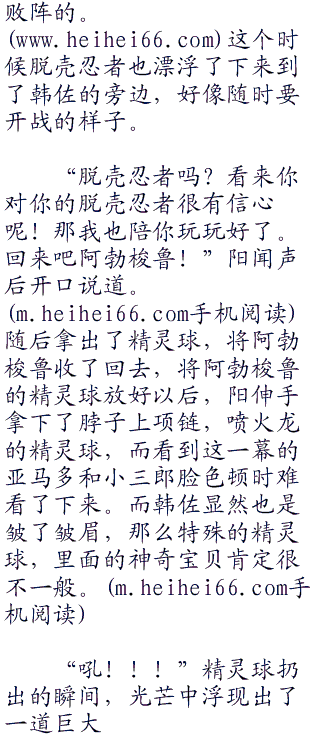 败阵的。
(www.heihei66.com)这个时
候脱壳忍者也漂浮了下来到
了韩佐的旁边，好像随时要
开战的样子。
“脱壳忍者吗？看来你
对你的脱壳忍者很有信心
呢！那我也陪你玩玩好了。
回来吧阿勃梭鲁！”阳闻声
后开口说道。
(m.heihei66.com手机阅读)
随后拿出了精灵球，将阿勃
梭鲁收了回去，将阿勃梭鲁
的精灵球放好以后，阳伸手
拿下了脖子上项链，喷火龙
的精灵球，而看到这一幕的
亚马多和小三郎脸色顿时难
看了下来。而韩佐显然也是
皱了皱眉，那么特殊的精灵
球，里面的神奇宝贝肯定很
不一般。(m.heihei66.com手
机阅读)
“吼！！！”精灵球扔
出的瞬间，光芒中浮现出了
一道巨大